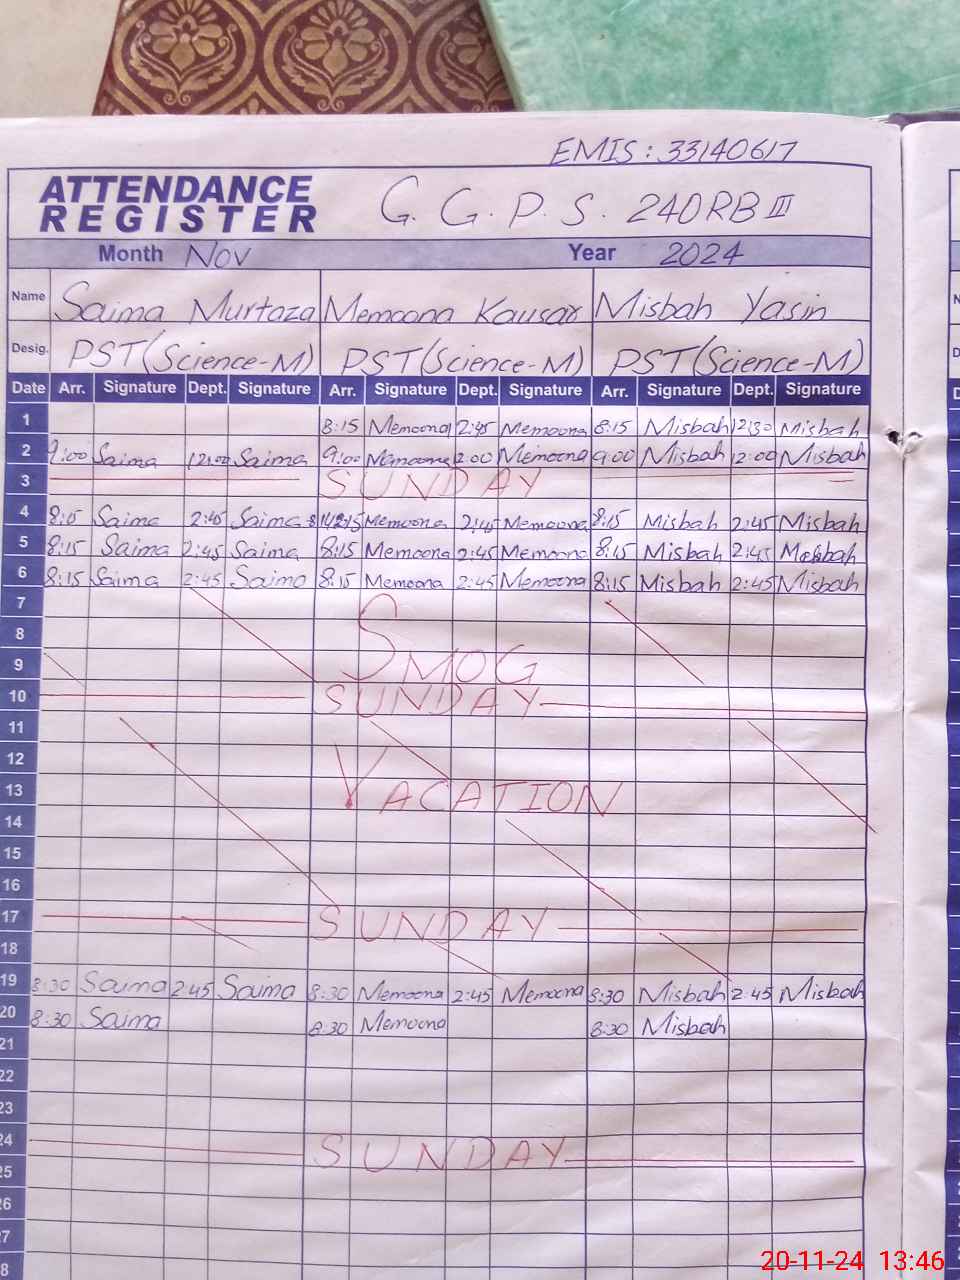 EMIS: 33140617
ATTENDANCE REGISTER G. G. P. S. 240RB III
Month Nov Year 2024
Name Saima Murtaza Memoona Kausar Misbah Yasin
Desig. PST(Science-M) PST(Science-M) PST(Science-M)
Date Arr. Signature Dept. Signature Arr. Signature Dept. Signature Arr. Signature Dept. Signature
1 8:15 Memoona 2:45 Memoona 8:15 Misbah 12:30 Misbah
2 9:00 Saima 12:00 Saima 9:00 Memoona 2:00 Memoona 9:00 Misbah 12:00 Misbah
3 SUNDAY
4 8:15 Saima 2:45 Saima Memoona 2:45 Memoona 8:15 Misbah 2:45 Misbah
5 8:15 Saima 2:45 Saima 8:15 Memoona 2:45 Memoona 8:15 Misbah 2:45 Misbah
6 8:15 Saima 2:45 Saima 8:15 Memoona 2:45 Memoona 8:15 Misbah 2:45 Misbah
7
8
9 SMOG
10 SUNDAY
11
12
13 VACATION
14
15
16
17 SUNDAY
18
19 8:30 Saima 2:45 Saima 8:30 Memoona 2:45 Memoona 8:30 Misbah 2:45 Misbah
20 8:30 Saima 8:30 Memoona 8:30 Misbah
21
22
23
24 SUNDAY
25
26
27
20-11-24 13:46